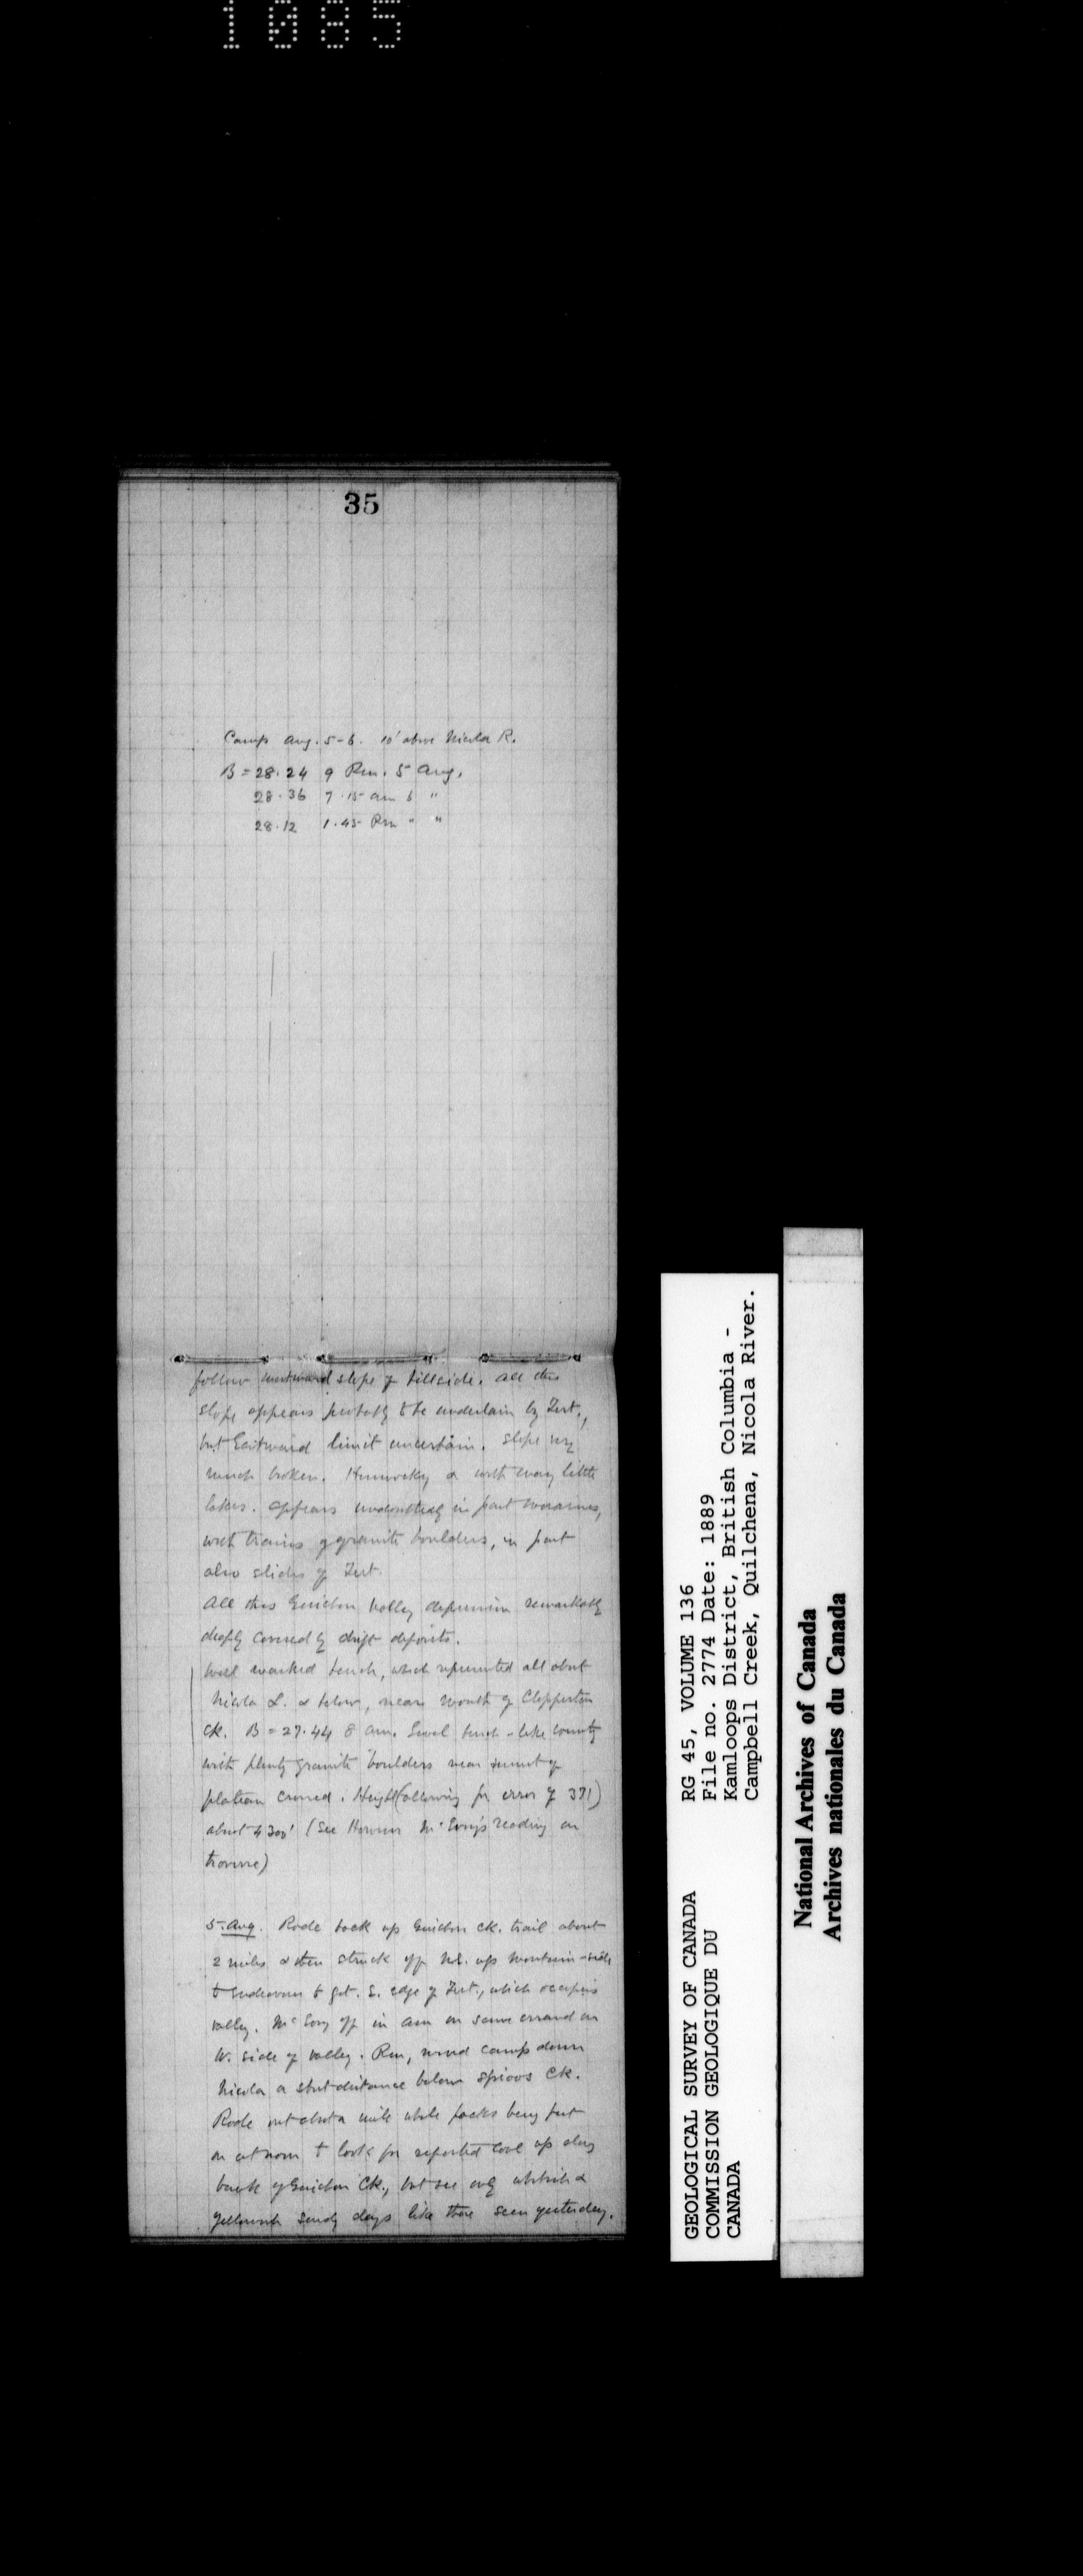 1085
35
Camp Aug. 5-6. 10' above Nicola R.
B = 28.24 9 Pm. 5 Aug.
28.36 7.15 am 6 "
28.12 1.45 Pm " "
follow westward slope of hillside. All this
slope appears probably to be underlain by Tert.,
but Eastward limit uncertain. Slope very
much broken. Hummocky & with many little
lakes. Appears undoubtedly in part moraines,
with trains of granite boulders, in part
also slides of Tert.
All this Guichon Valley depression remarkably
deeply covered by drift deposits.
Well marked bench, which represented all about
Nicola L. & below, near mouth of Clapperton
Ck. B = 27.44 8 am. Level bench-like country
with plenty granite boulders near summit of
plateau crossed. Height (allowing for error of 371)
about 4300' (See However McEvoy's reading on
traverse)
5 Aug. Rode back up Guichon Ck. trail about
2 miles & then struck off N.E. up mountain-side
to endeavour to get S. edge of Tert., which occupies
valley. McEvoy off in am on same errand on
W. side of valley. Pm, moved camp down
Nicola a short distance below Spioos Ck.
Rode out about a mile while packs being put
on at noon to look for reported coal up along
bank of Guichon Ck., but see only whitish &
yellowish sandy clays like those seen yesterday.
GEOLOGICAL SURVEY OF CANADA
COMMISSION GEOLOGIQUE DU
CANADA
RG 45, VOLUME 136
File no. 2774 Date: 1889
Kamloops District, British Columbia -
Campbell Creek, Quilchena, Nicola River.
National Archives of Canada
Archives nationales du Canada